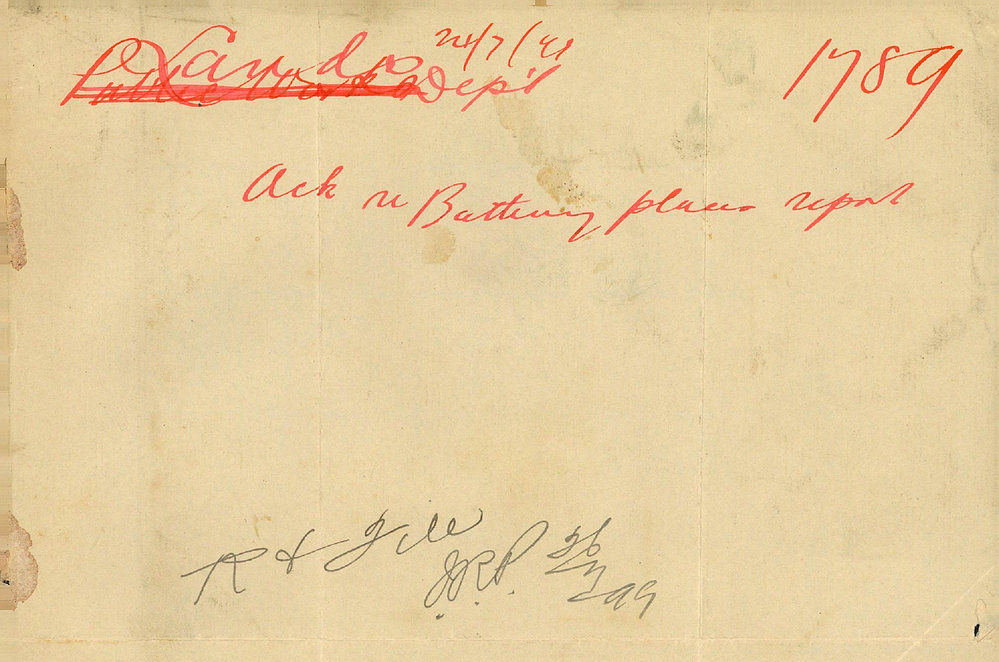 Lands 24/7/99
Public Works Dep't
1789
Ack re Battery places report
R & File
J.R.P. 26/7/99